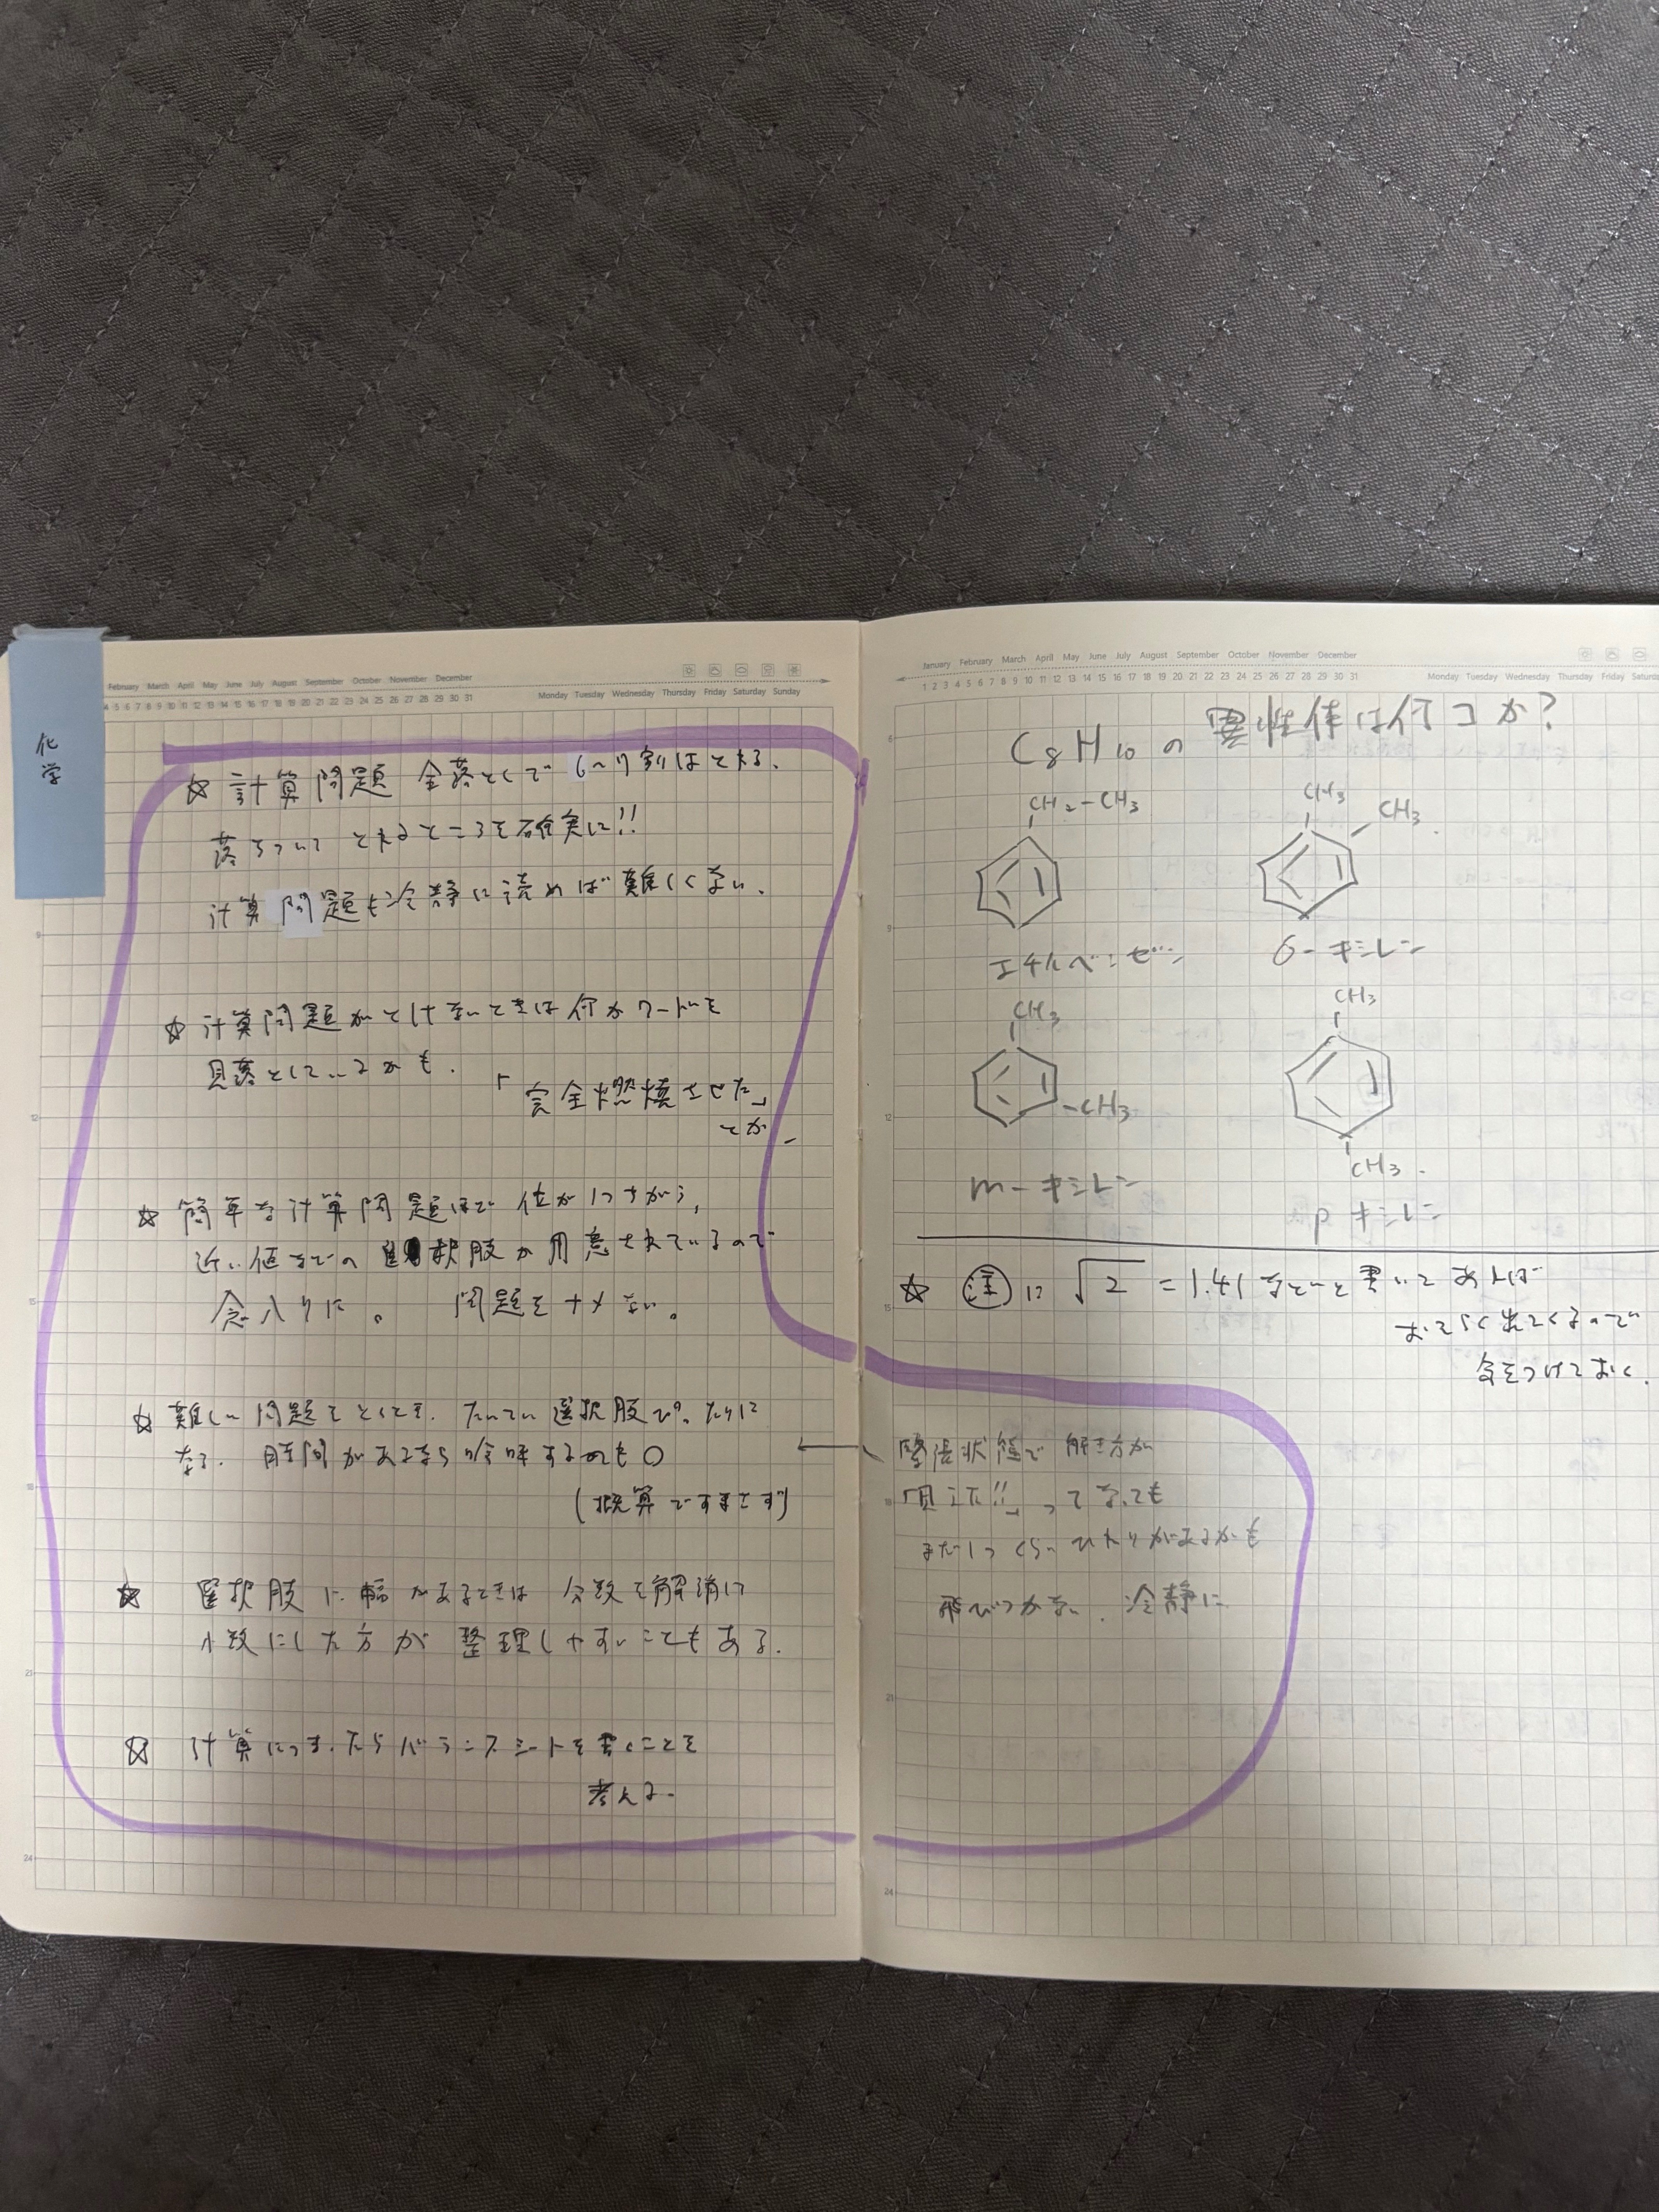 化学
February March April May June July August September October November December
4 5 6 7 8 9 10 11 12 13 14 15 16 17 18 19 20 21 22 23 24 25 26 27 28 29 30 31
Monday Tuesday Wednesday Thursday Friday Saturday Sunday
☆ 計算問題 全落としで 6〜7割はとれる.
落ちついて とれるところを確実に!!
計算問題も冷静に読めば難しくない.
☆ 計算問題がとけないときは何かワードを
見落としているかも.
「完全燃焼させた」
とか
☆ 簡単な計算問題ほど 位が1つちがう,
近い値などの 選択肢が用意されているので
念入りに。 問題をナメない。
☆ 難しい問題をとくとき. たいてい選択肢ぴったりに
なる. 時間があるなら吟味するのも○
(概算ですまさず)
☆ 選択肢に幅があるときは 分数を解消し
小数にした方が 整理しやすいこともある.
☆ 計算につまったらバランスシートを書くことを
考える.
9
12
15
18
21
24
January February March April May June July August September October November December
1 2 3 4 5 6 7 8 9 10 11 12 13 14 15 16 17 18 19 20 21 22 23 24 25 26 27 28 29 30 31
Monday Tuesday Wednesday Thursday Friday
C8H10の異性体は何コか?
CH2-CH3
エチルベンゼン
CH3
CH3
o-キシレン
CH3
-CH3
m-キシレン
CH3
CH3
pキシレン
☆ 注に √2 = 1.41 などと書いてあれば
おそらく出てくるので
気をつけておく.
緊張状態で 解き方が
「見えた!!」ってなっても
まだ1つくらいひねりがあるかも
飛びつかない. 冷静に
6
9
12
15
18
21
24